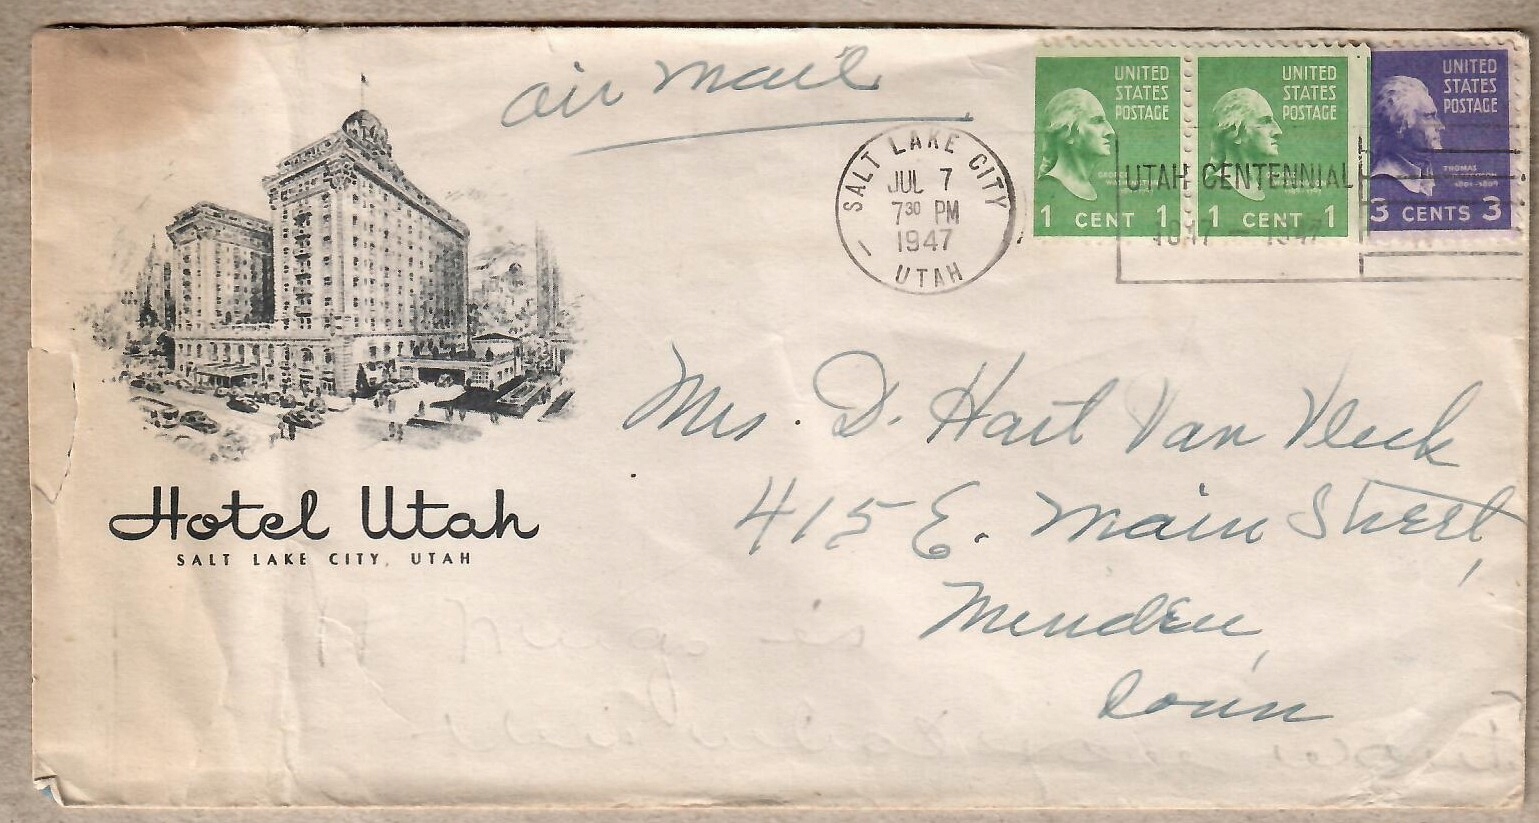 air mail
UNITED STATES POSTAGE
GEORGE WASHINGTON
1 CENT 1
UNITED STATES POSTAGE
1 CENT 1
UNITED STATES POSTAGE
THOMAS
3 CENTS 3
SALT LAKE CITY
JUL 7
7 30 PM
1947
UTAH
UTAH CENTENNIAL
1847 - 1947
Mrs. D. Hart Van Vleck
415 E. Main Street,
Minden,
Louisn
Hotel Utah
SALT LAKE CITY, UTAH